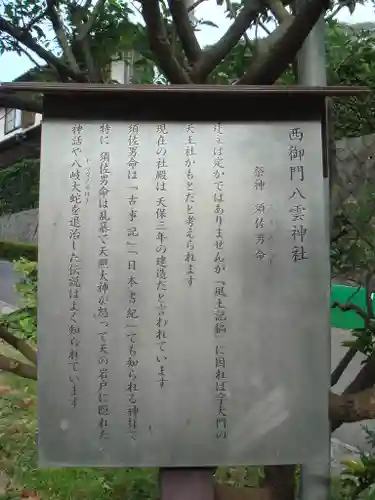 西御門八雲神社
祭神 須佐男命
建立は定かではありませんが「風土記稿」に因れば今大門の
天王社かもとだと考えられます
現在の社殿は 天保三年の建造だと言われています
須佐男命は「古事記」「日本書紀」でも知られる神様で
特に 須佐男命は乱暴で天照大神が怒って天の岩戸に隠れた
神話や八岐大蛇を退治した伝説はよく知られています